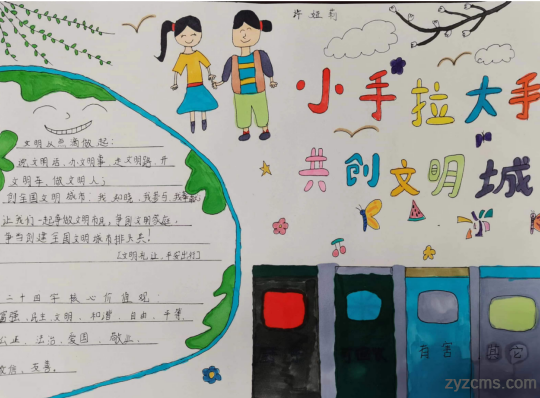 许妞莉
小手拉大手
共创文明城
文明从点滴做起:
说文明话、办文明事、走文明路、开
文明车,做文明人;
创全国文明城市:我知晓、我参与、我奉献;
让我们一起争做文明市民,争创文明家庭,
争当创建全国文明城市排头兵!
【文明礼让,平安出行】
二十四字核心价值观:
富强、民主、文明、和谐、自由、平等、
公正、法治、爱国、敬业、
诚信、友善。
有害
zyzcms.com